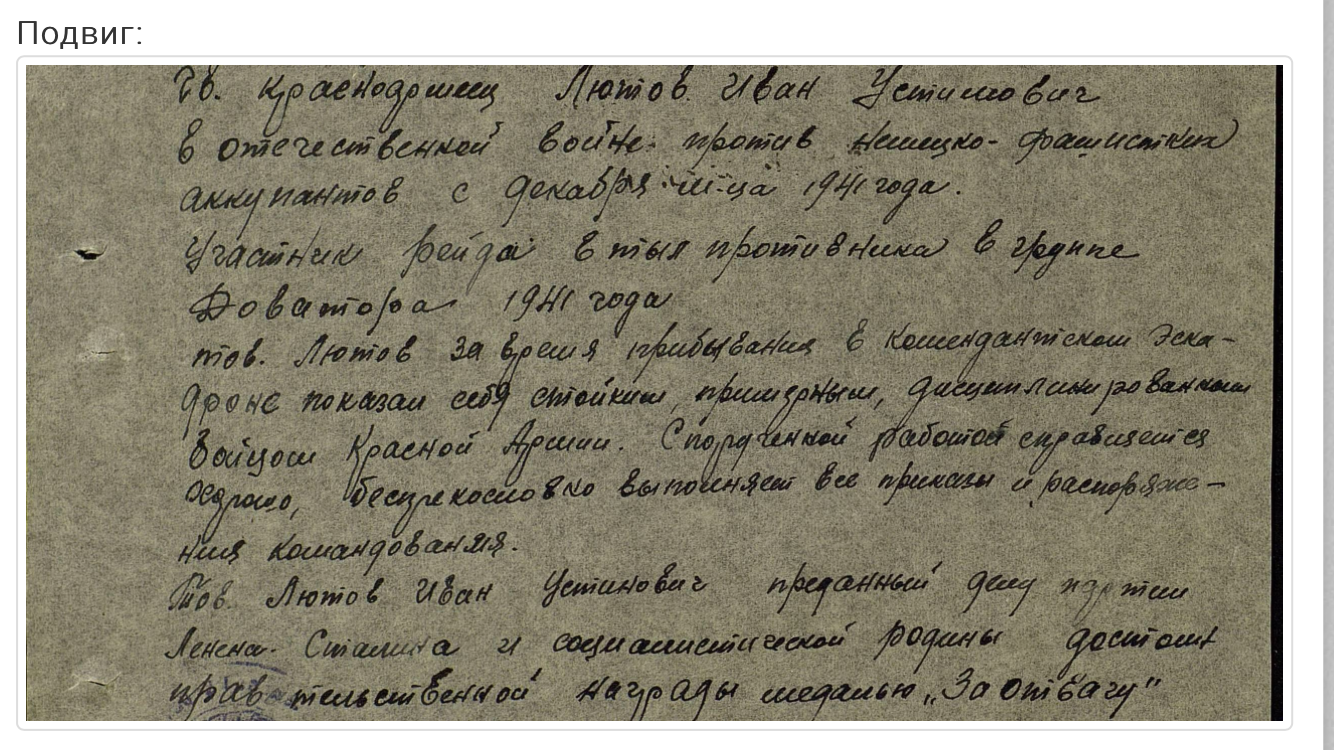 Подвиг:
Гв. Красноармеец Лютов Иван Устинович
в отечественной войне против немецко-фашистких
аккупантов с декабря м-ца 1941 года.
Участник рейда в тыл противника в группе
Доватора 1941 года
тов. Лютов за время прибывания в комендантском Эска-
дроне показал себя стойким, примерным, дисциплинированным
Бойцом Красной Армии. С порученной работой справляется
хорошо, беспрекословно выполняет все приказы и распоряже-
ния командования.
Тов. Лютов Иван Устинович преданный делу партии
Ленина-Сталина и социалистической родины достоин
правительственной награды медалью „За отвагу"